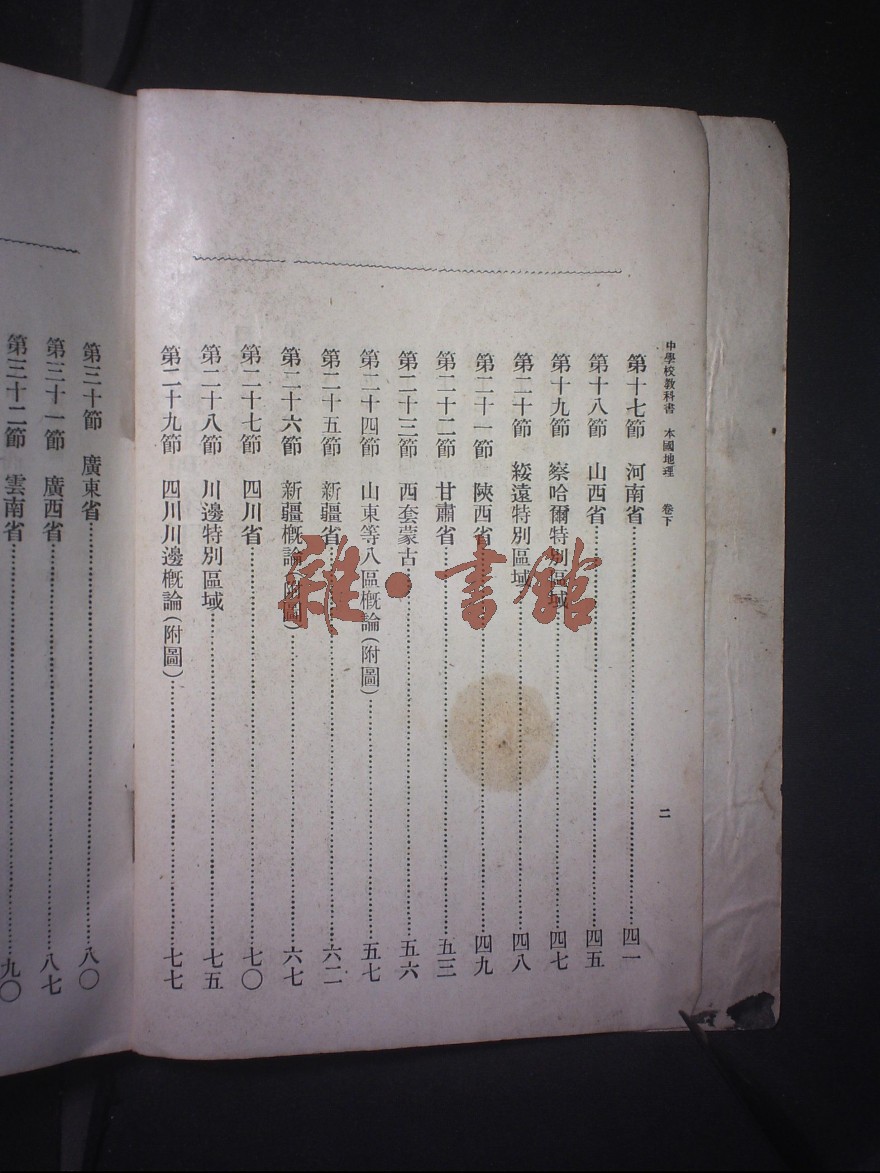 中學校教科書 本國地理 卷下
二
第十七節 河南省……四一
第十八節 山西省……四五
第十九節 察哈爾特別區域……四七
第二十節 綏遠特別區域……四八
第二十一節 陝西省……四九
第二十二節 甘肅省……五三
第二十三節 西套蒙古……五六
第二十四節 山東等八區槪論(附圖)……五七
第二十五節 新疆省……六二
第二十六節 新疆槪論(附圖)……六七
第二十七節 四川省……七〇
第二十八節 川邊特別區域……七五
第二十九節 四川川邊槪論(附圖)……七七
第三十節 廣東省……八〇
第三十一節 廣西省……八七
第三十二節 雲南省……九〇
雜·書館